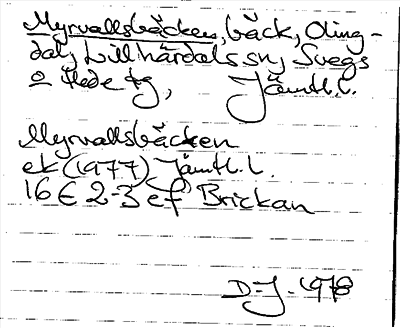 Myrvallsbäcken, bäck, Oling-
dal, Lillhärdals sn, Svegs
o Hede tg, Jämtl.l.
Myrvallsbäcken
ek (1977) Jämtl.l.
16 E 2-3 ef Brickan
D-J- 1978